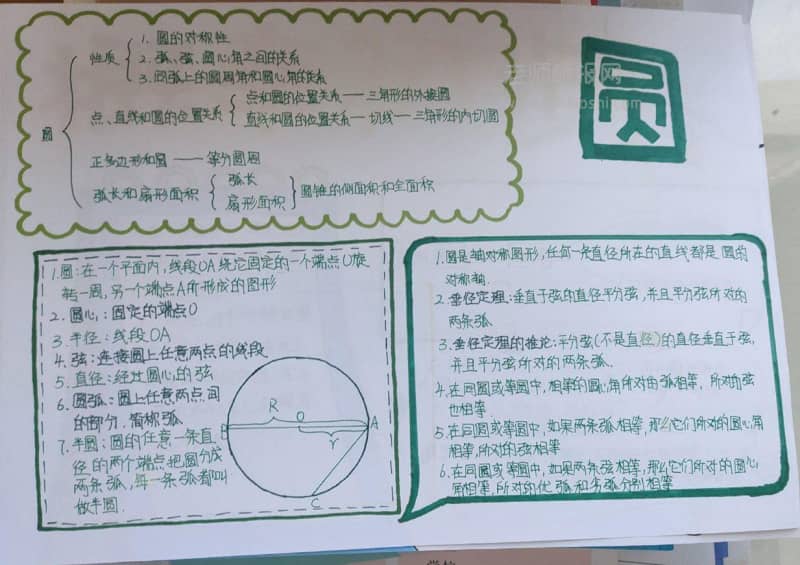 圆
圆
性质
1. 圆的对称性
2. 弧、弦、圆心角之间的关系
3. 同弧上的圆周角和圆心角的关系
点、直线和圆的位置关系
点和圆的位置关系——三角形的外接圆
直线和圆的位置关系—切线—三角形的内切圆
正多边形和圆——等分圆周
弧长和扇形面积
弧长
扇形面积
圆锥的侧面积和全面积
1.圆:在一个平面内,线段OA绕它固定的一个端点O旋
转一周,另一个端点A所形成的图形
2.圆心:固定的端点O
3.半径:线段OA
4.弦:连接圆上任意两点的线段
5.直径:经过圆心的弦
6.圆弧:圆上任意两点间
的部分.简称弧.
7.半圆:圆的任意一条直
径的两个端点把圆分成
两条弧,每一条弧都叫
做半圆.
R
O
A
B
r
C
1.圆是轴对称图形,任何一条直径所在的直线都是圆的
对称轴.
2.垂径定理:垂直于弦的直径平分弦,并且平分弦所对的
两条弧.
3.垂径定理的推论:平分弦(不是直径)的直径垂直于弦,
并且平分弦所对的两条弧.
4.在同圆或等圆中,相等的圆心角所对的弧相等,所对的弦
也相等.
5.在同圆或等圆中,如果两条弧相等,那么它们所对的圆心角
相等,所对的弦相等
6.在同圆或等圆中,如果两条弦相等,那么它们所对的圆心
角相等,所对的优弧和劣弧分别相等